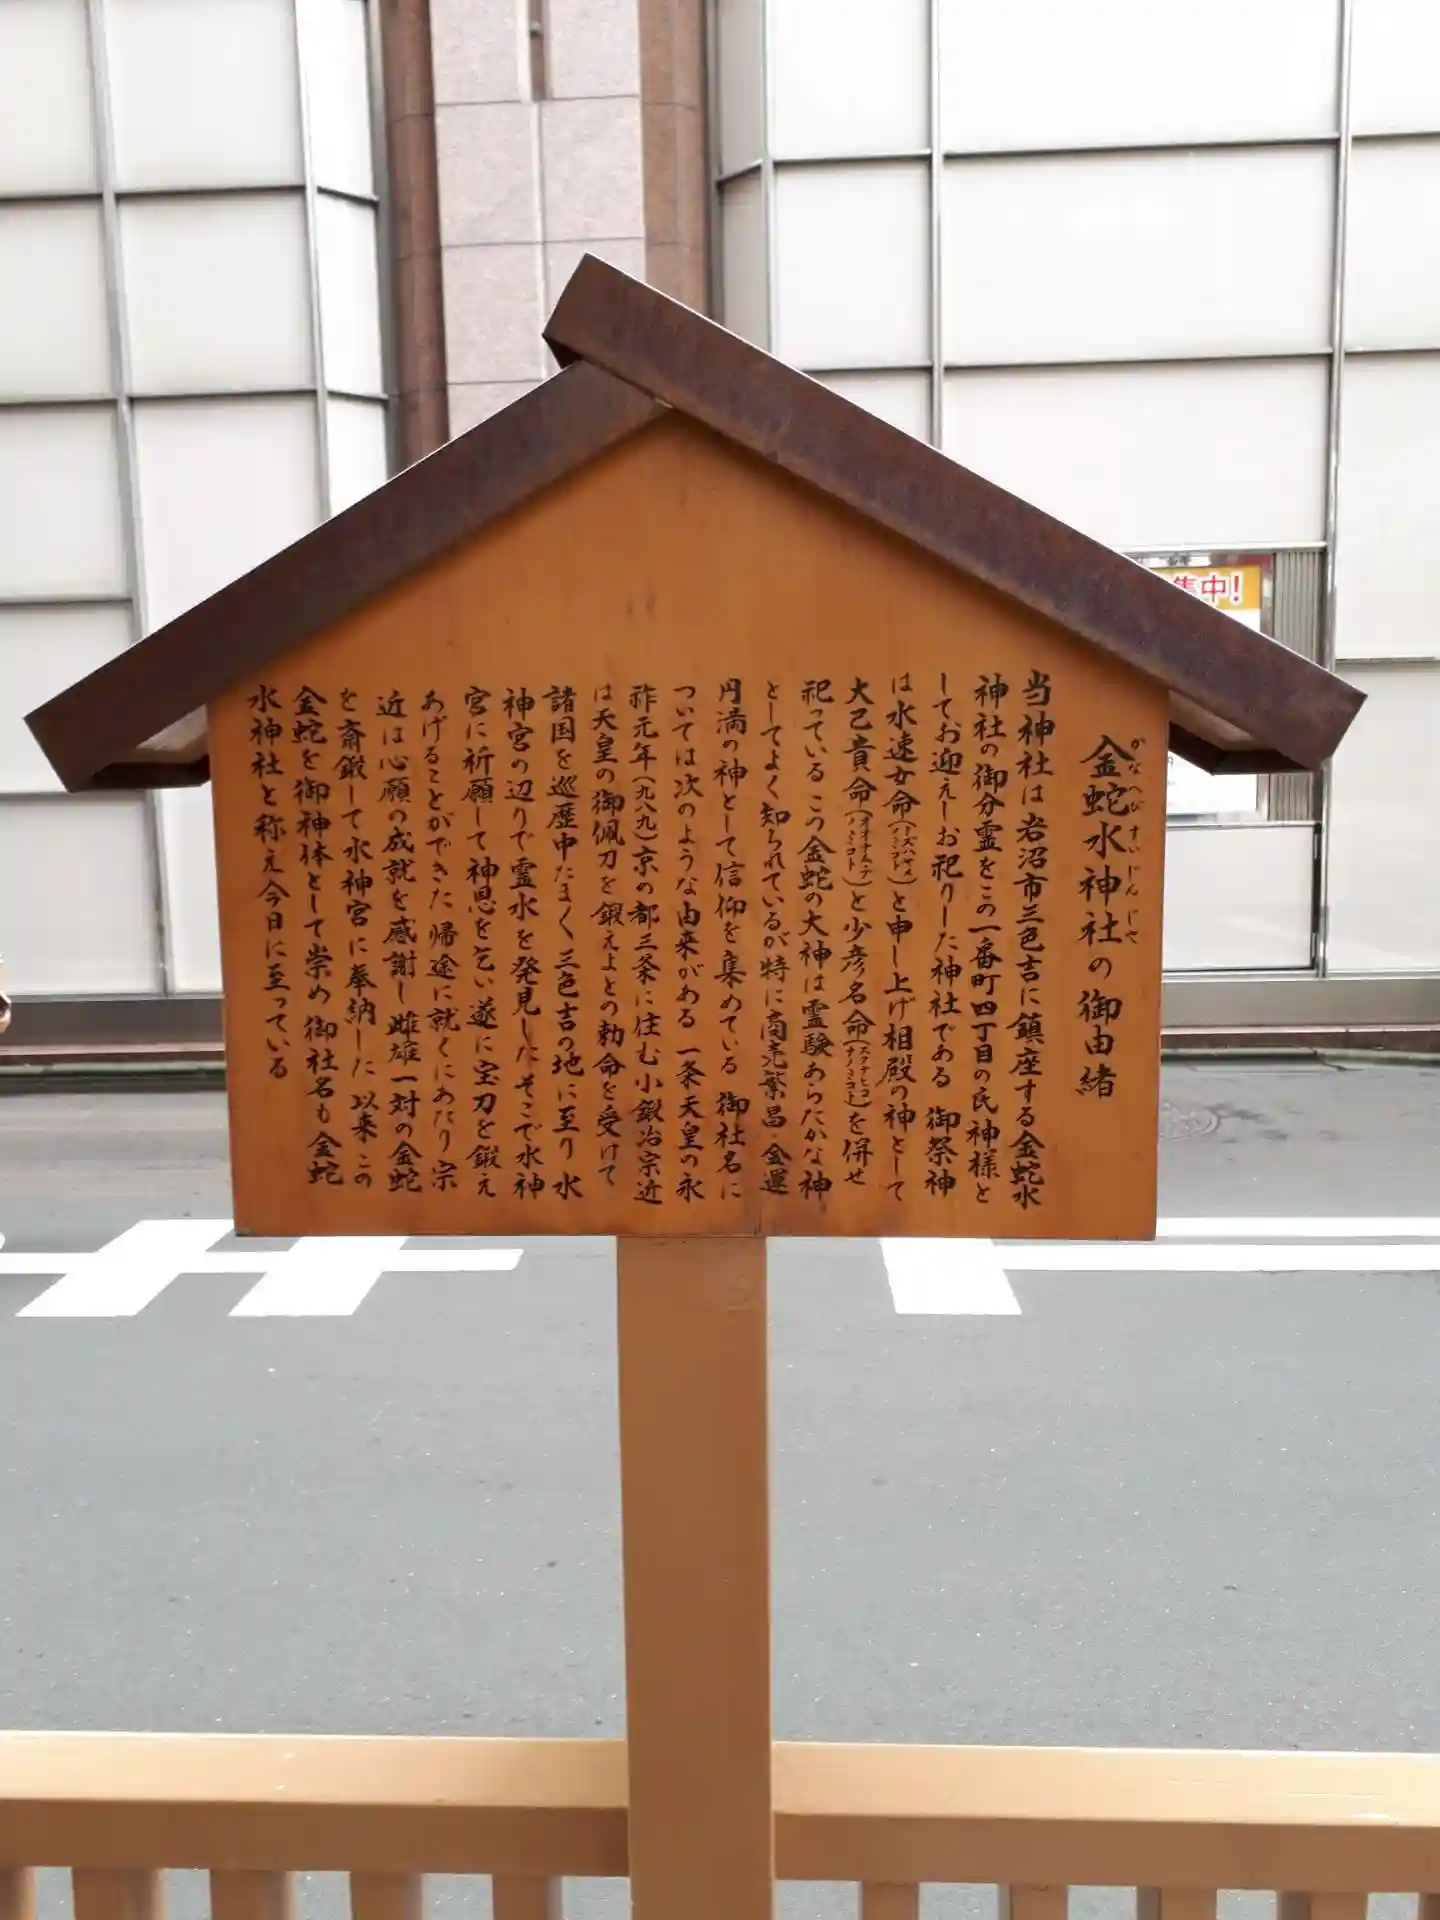 金蛇水神社の御由緒
かなへびすいじんじや
当神社は岩沼市三色吉に鎮座する金蛇水
神社の御分霊をこの一番町四丁目の氏神様と
してお迎えしお祀りした神社である 御祭神
は水速女命(ミズハヤメノミコト)と申し上げ相殿の神として
大己貴命(オオナムチノミコト)と少彦名命(スクナヒコナノミコト)を併せ
祀っている この金蛇の大神は霊験あらたかな神
としてよく知られているが特に商売繁昌・金運
円満の神として信仰を集めている 御社名に
ついては次のような由来がある 一条天皇の永
祚元年(九八九)京の都三条に住む小鍛冶宗近
は天皇の御佩刀を鍛えよとの勅命を受けて
諸国を巡歴中たまく三色吉の地に至り 水
神宮の辺りで霊水を発見した そこで水神
宮に祈願して神恩を乞い遂に宝刀を鍛え
あげることができた 帰途に就くにあたり宗
近は心願の成就を感謝し雌雄一対の金蛇
を斎鍛して水神宮に奉納した 以来この
金蛇を御神体として崇め御社名も金蛇
水神社と称え今日に至っている
集中!